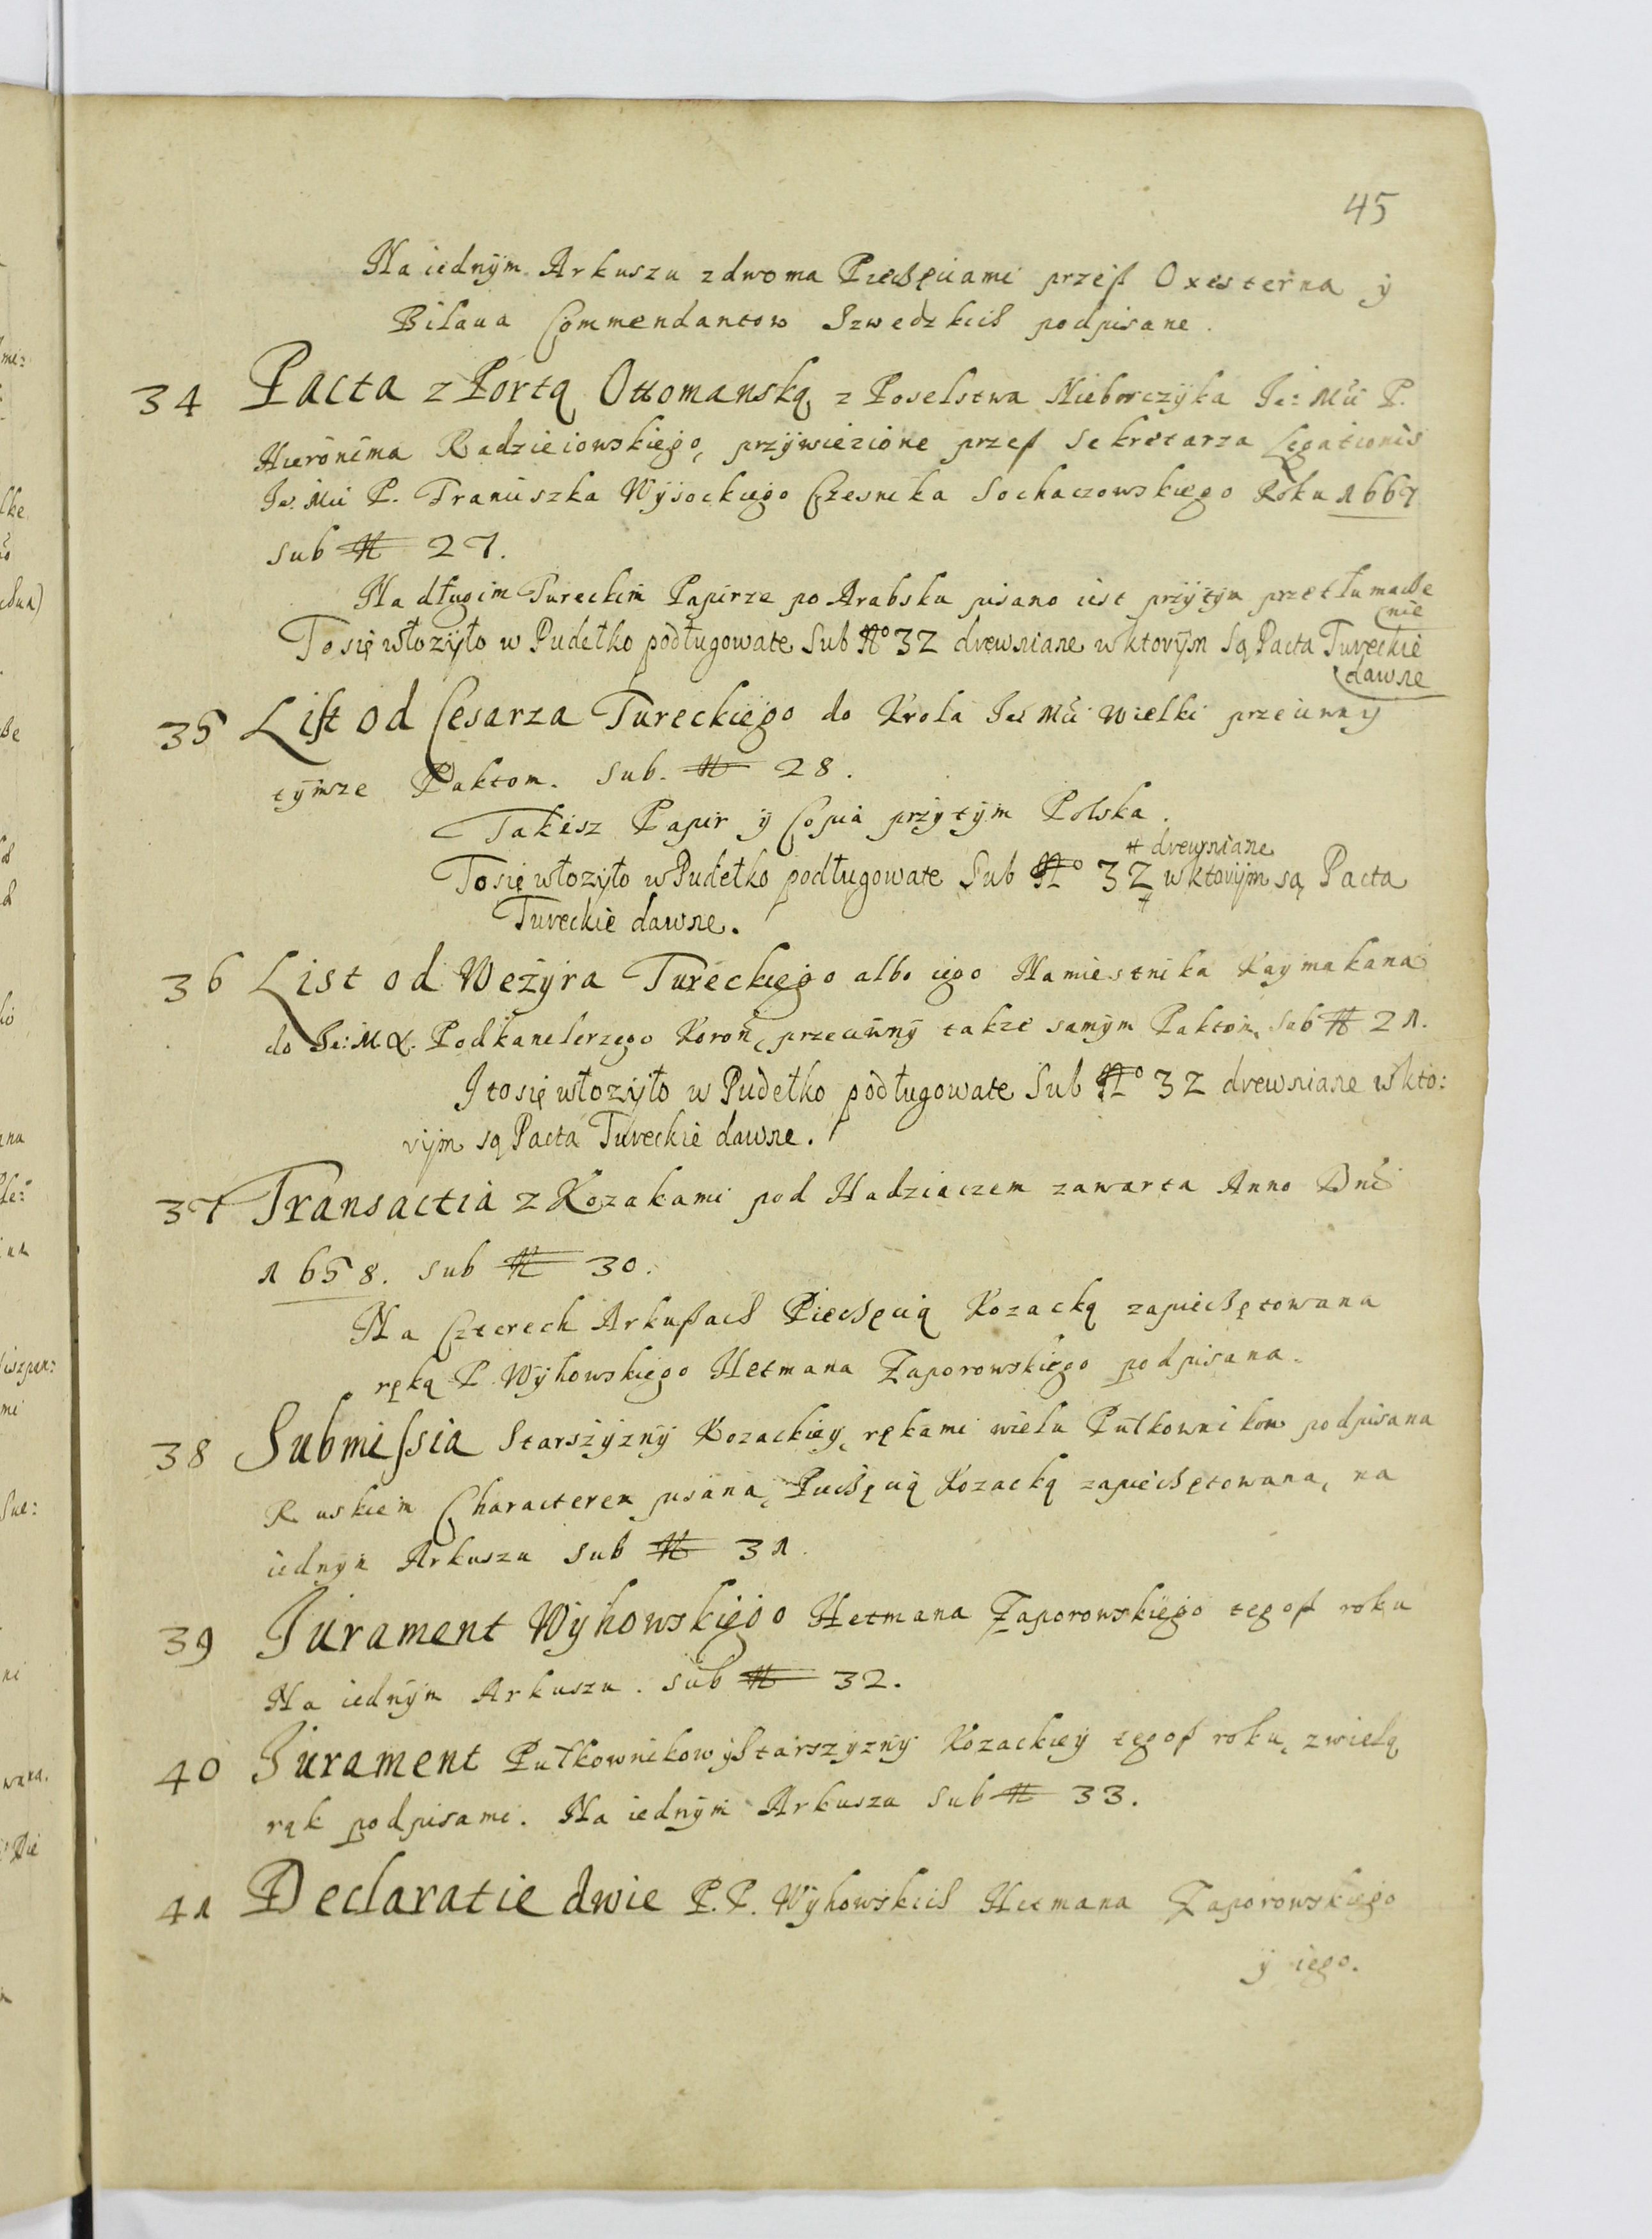 45
Na iednÿm Arkuszu z dwoma Pieczęciami przeß Oxesterna ÿ
Bilaua Commendantow Szwedzkich podpisane.
34 Pacta z Portą Ottomanską z Poselstwa Nieborczÿka Je: Mći P.
Hieronima Radzieiowskiego, przÿwiezione przeß Sekretarza Legationis
Je: Mći P. Franciszka Wÿsockiego Czesnika Sochaczowskiego Roku 1667
sub N 27.
Na długim Tureckim Papirze po Arabsku pisano iest przÿtÿm przetłumacze
nie
To się włozÿło w Pudełko podługowate Sub No 32 drewniane w ktorÿm są Pacta Tureckie
dawne
35 List od Cesarza Tureckiego do Krola Je Mći wielki przeciwnÿ
tÿmze Paktom. Sub. N 28.
Takisz Papir ÿ Copia przÿtÿm Polska.
# drewniane
To się włozÿło w Pudełko podługowate Sub No 32 # w ktorÿm są Pacta
Tureckie dawne.
36 List od Wezÿra Tureckiego albo iego Namiestnika Kaymakana
do Je: M X. Podkanclerzego Koron, przeciwnÿ takze samÿm Paktom, sub N 21.
I to się włozÿło w Pudełko podługowate Sub No 32 drewniane w kto:
rÿm są Pacta Tureckie dawne.
37 Transactia z Kozakami pod Hadziaczem zawarta Anno Dni
1658. sub N 30.
Na Czterech Arkußach Pieczęcią Kozacką zapieczętowana
ręką P. Wÿhowskiego Hetmana Zaporowskiego podpisana.
38 Submissia Starszÿznÿ Kozackieÿ, rękami wielu Pułkownikow podpisana
Ruskiem Characterem pisana, Pieczęcią Kozacką zapieczętowana, na
iednÿm Arkuszu sub N 31.
39 Jurament Wÿhowskiego Hetmana Zaporowskiego tegoß roku
Na iednÿm Arkuszu. sub N 32.
40 Jurament Pułkownikow ÿ Starszÿznÿ Kozackieÿ tegoß roku, z wielą
rąk podpisami. Na iednÿm Arkuszu sub N 33.
41 Declaratie dwie P.P. Wÿhowskich Hetmana Zaporowskiego
ÿ iego.